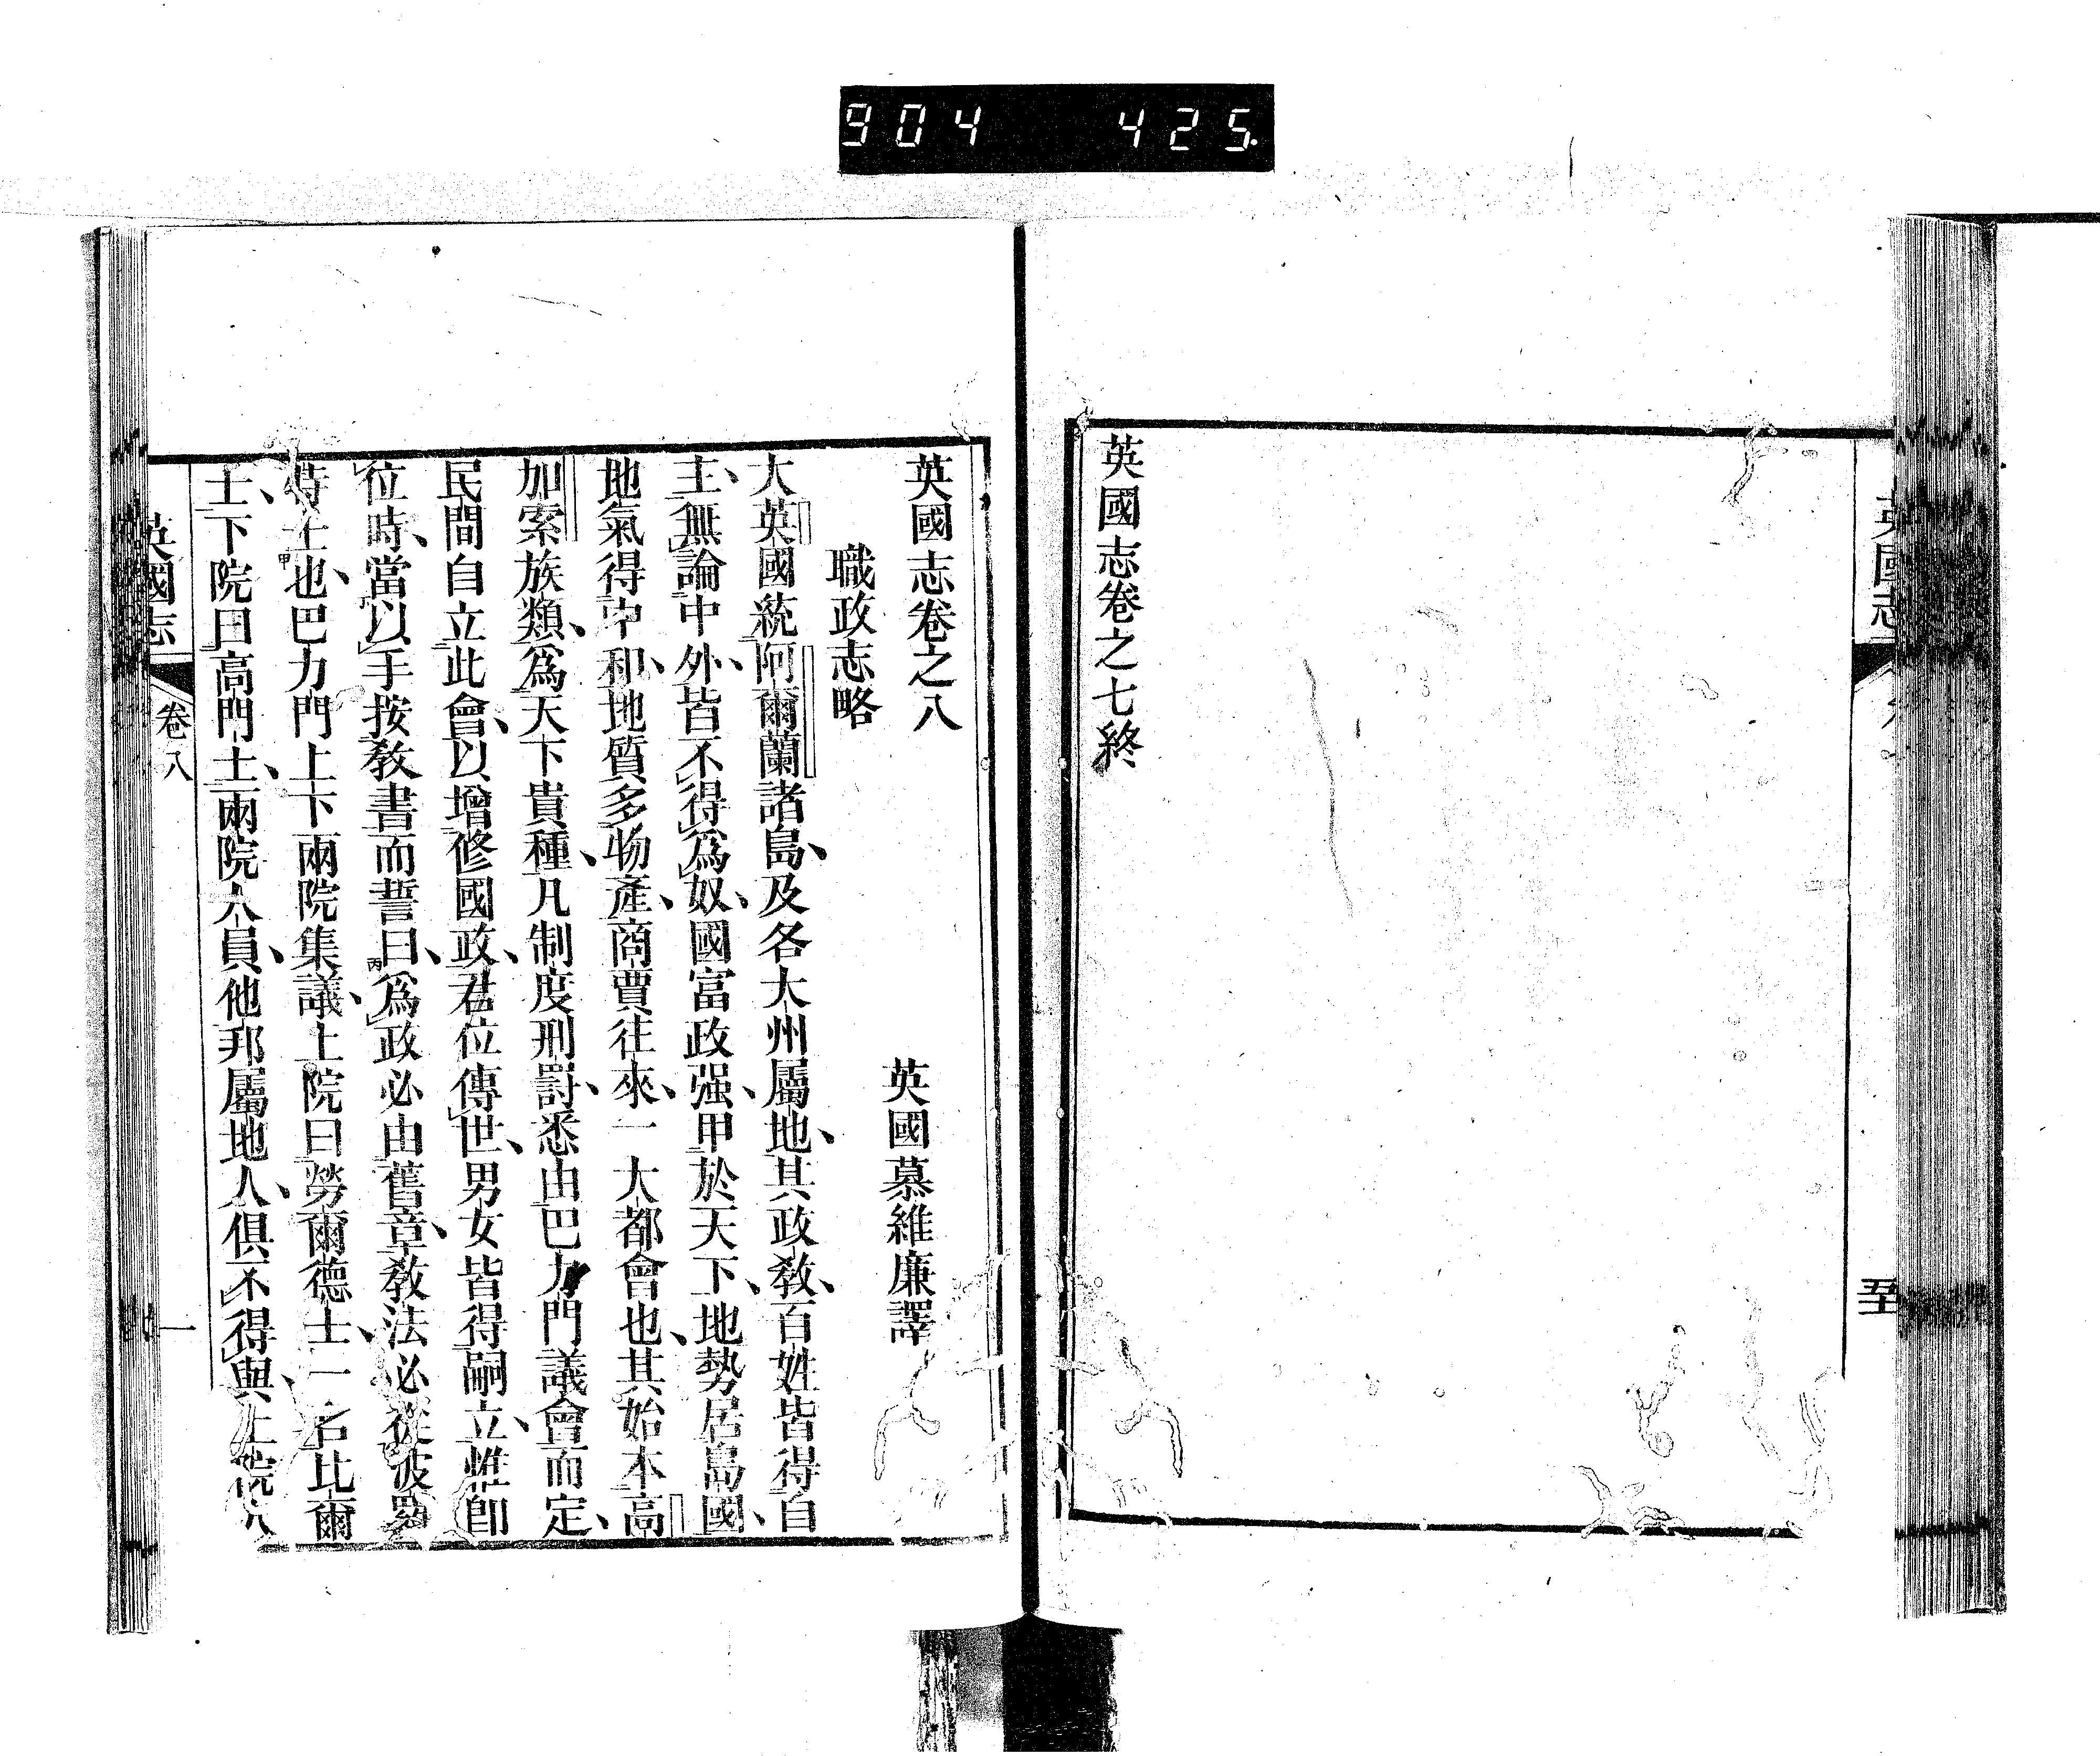 904 425
英國志卷之七終
英國志
英國志卷之八
職政志略
英國慕維廉譯
大英國統阿爾蘭諸島、及各大州屬地、其政敎、百姓皆得自
主、無論中外、皆不得爲奴、國富政强、甲於天下、地勢居島國、
地氣得中和、地質多物產、商賈往來、一大都會也、其始本高
加索族類、爲天下貴種、凡制度刑罰、悉由巴力門議會而定、
民間自立此會、以增修國政、君位傳世、男女皆得嗣立、惟卽
位時、當以手按敎書而誓曰、爲政必由舊章、敎法必從波羅
特士也、巴力門上下兩院集議、上院曰勞爾德士、一名比爾
士、下院曰高門士、兩院人員、他邦屬地人、俱不得與、上院六
甲
丙
英國志
卷八
一